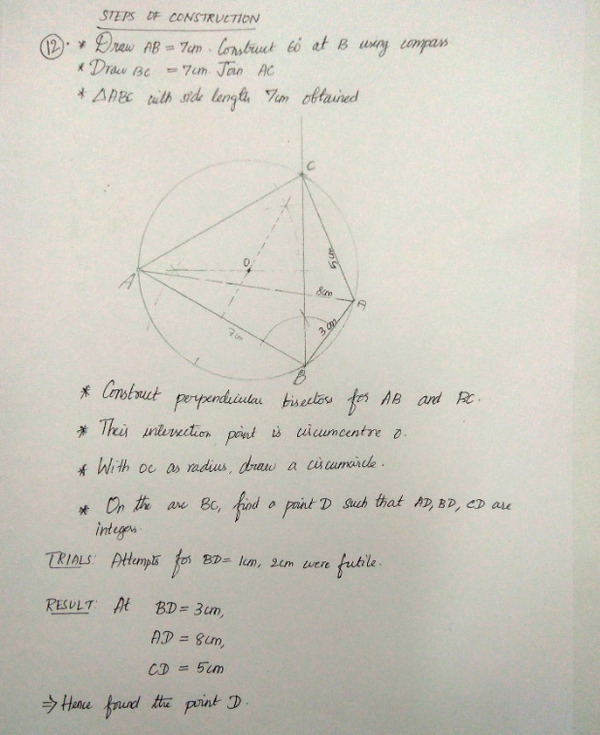 STEPS OF CONSTRUCTION
12. * Draw AB = 7cm. Construct 60° at B using compass
* Draw BC = 7cm. Join AC
* △ABC with side length 7cm obtained
C
A
O
5cm
8cm
D
3cm
7cm
B
* Construct perpendicular bisectors for AB and BC.
* Their intersection point is circumcentre O.
* With OC as radius, draw a circumcircle.
* On the arc BC, find a point D such that AD, BD, CD are
integers.
TRIALS: Attempts for BD = 1cm, 2cm were futile.
RESULT: At BD = 3cm,
AD = 8cm,
CD = 5cm
⇒ Hence found the point D.